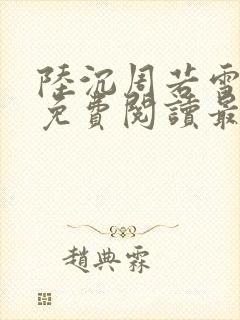 陸沉周若雪
免費閱讀最
趙典霖